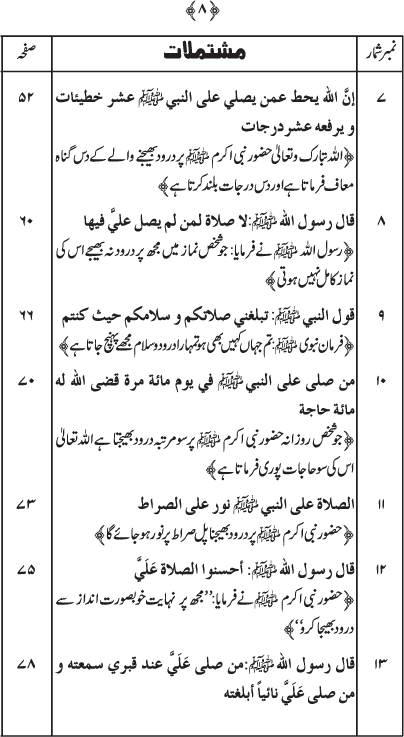 ﴿۸﴾
نمبر شمار	مشتملات	صفحہ
۷	إنَّ الله يحط عمن يصلي على النبي ﷺ عشر خطيئات	۵۲
و يرفعه عشر درجات
﴿اللہ تبارک و تعالیٰ حضور نبی اکرم ﷺ پر درود بھیجنے والے کے دس گناہ
معاف فرماتا ہے اور دس درجات بلند کرتا ہے﴾
۸	قال رسول الله ﷺ: لا صلاة لمن لم يصل عليَّ فيها	۶۰
﴿رسول اللہ ﷺ نے فرمایا: جو شخص نماز میں مجھ پر درود نہ بھیجے اس کی
نماز کامل نہیں ہوتی﴾
۹	قول النبي ﷺ: تبلغني صلاتكم و سلامكم حيث كنتم	۶۶
﴿فرمان نبوی ﷺ: تم جہاں کہیں بھی ہو تمہارا درود و سلام مجھے پہنچ جاتا ہے﴾
۱۰	من صلى على النبي ﷺ في يوم مائة مرة قضى الله له	۷۰
مائة حاجة
﴿جو شخص روزانہ حضور نبی اکرم ﷺ پر سو مرتبہ درود بھیجتا ہے اللہ تعالیٰ
اس کی سو حاجات پوری فرماتا ہے﴾
۱۱	الصلاة على النبي ﷺ نور على الصراط	۷۳
﴿حضور نبی اکرم ﷺ پر درود بھیجنا پل صراط پر نور ہو جائے گا﴾
۱۲	قال رسول الله ﷺ: أحسنوا الصلاة عَلَيَّ	۷۵
﴿حضور نبی اکرم ﷺ نے فرمایا: ’’مجھ پر نہایت خوبصورت انداز سے
درود بھیجا کرو‘‘﴾
۱۳	قال رسول الله ﷺ: من صلى عَلَيَّ عند قبري سمعته و	۷۸
من صلى عَلَيَّ نائياً أبلغته